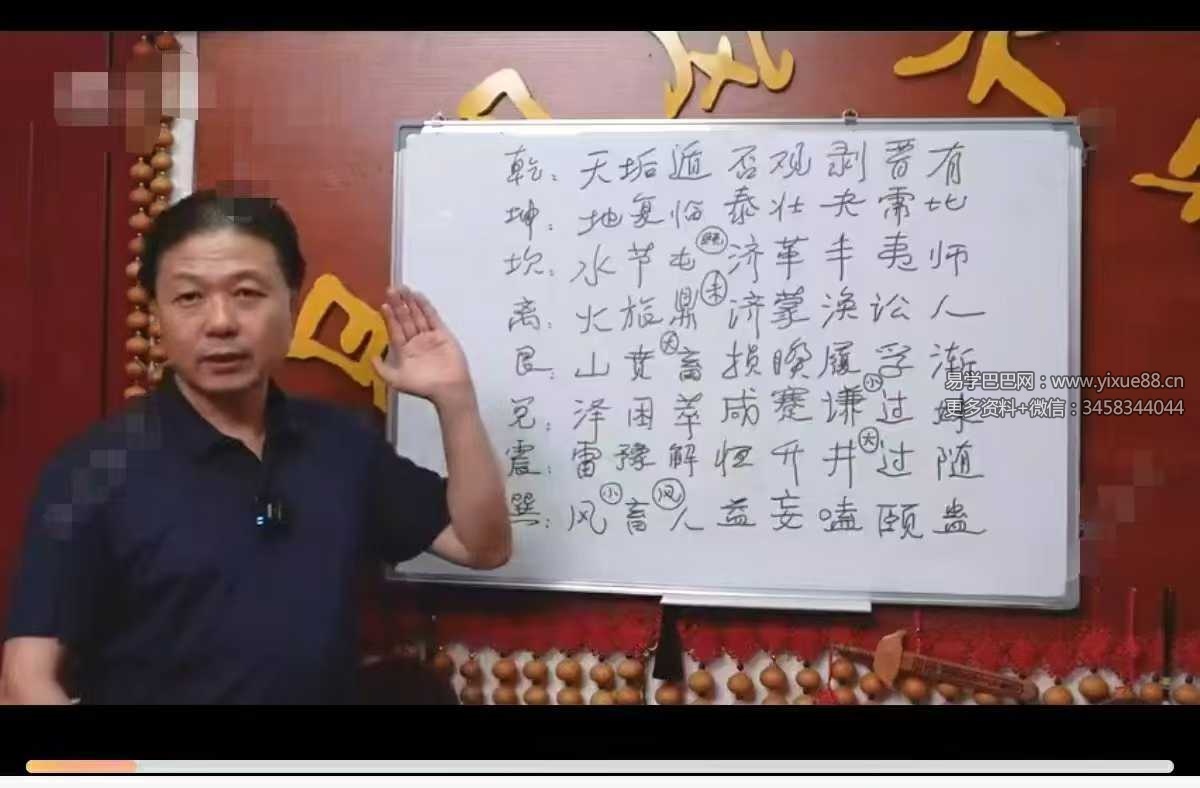 乾：天垢遁否观剥晋有
坤：地复临泰壮夬需比
坎：水节屯(既)济革丰夷师
离：火旅鼎(未)济蒙涣讼人
艮：山贲(大)畜损睽履孚渐
兑：泽困萃咸蹇谦(小)过妹
震：雷豫解恒升井(大)过随
巽：风(小)畜(风)人益妄嗑颐蛊
易学巴巴网：www.yixue88.cn
更多资料+微信：3458344044